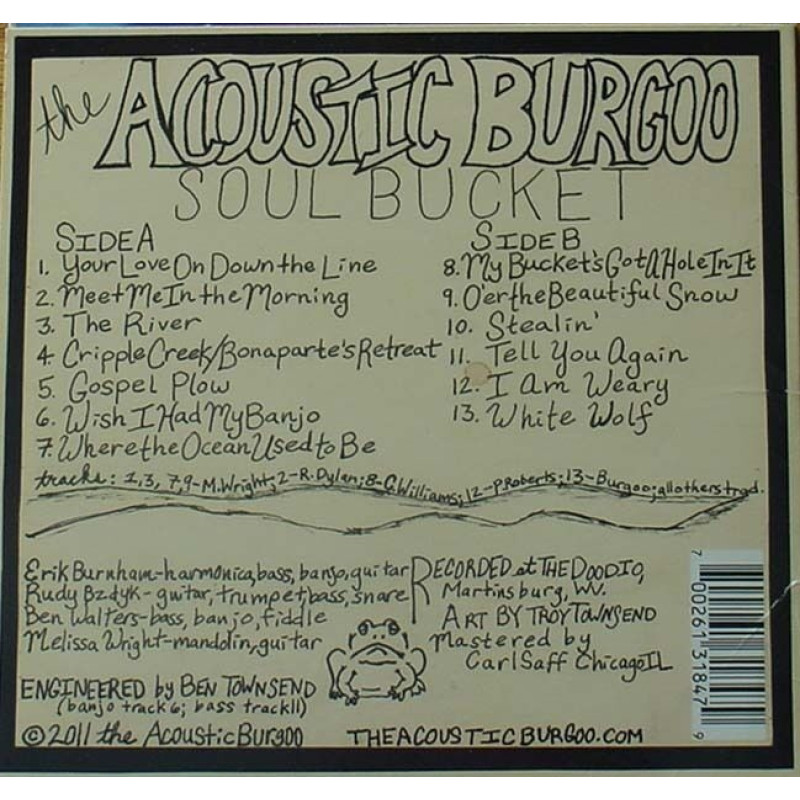 the ACOUSTIC BURGOO
SOUL BUCKET
SIDE A
1. Your Love On Down the Line
2. Meet Me In the Morning
3. The River
4. Cripple Creek/Bonaparte's Retreat
5. Gospel Plow
6. Wish I Had My Banjo
7. Where the Ocean Used to Be
SIDE B
8. My Bucket's Got A Hole In It
9. O'er the Beautiful Snow
10. Stealin'
11. Tell You Again
12. I Am Weary
13. White Wolf
tracks: 1,3, 7,9-M.Wright; 2-R.Dylan; 8-C.Williams; 12-P.Roberts; 13-Burgoo; all others trad.
Erik Burnham-harmonica, bass, banjo, guitar
Rudy Bzdyk-guitar, trumpet, bass, snare
Ben Walters-bass, banjo, fiddle
Melissa Wright-mandolin, guitar
ENGINEERED by BEN TOWNSEND
(banjo track 6; bass track 11)
© 2011 the Acoustic Burgoo
RECORDED at THE DOODIO,
Martinsburg, WV.
ART BY TROY TOWNSEND
Mastered by
Carl Saff Chicago IL
THEACOUSTICBURGOO.COM
7 00261 31847 9